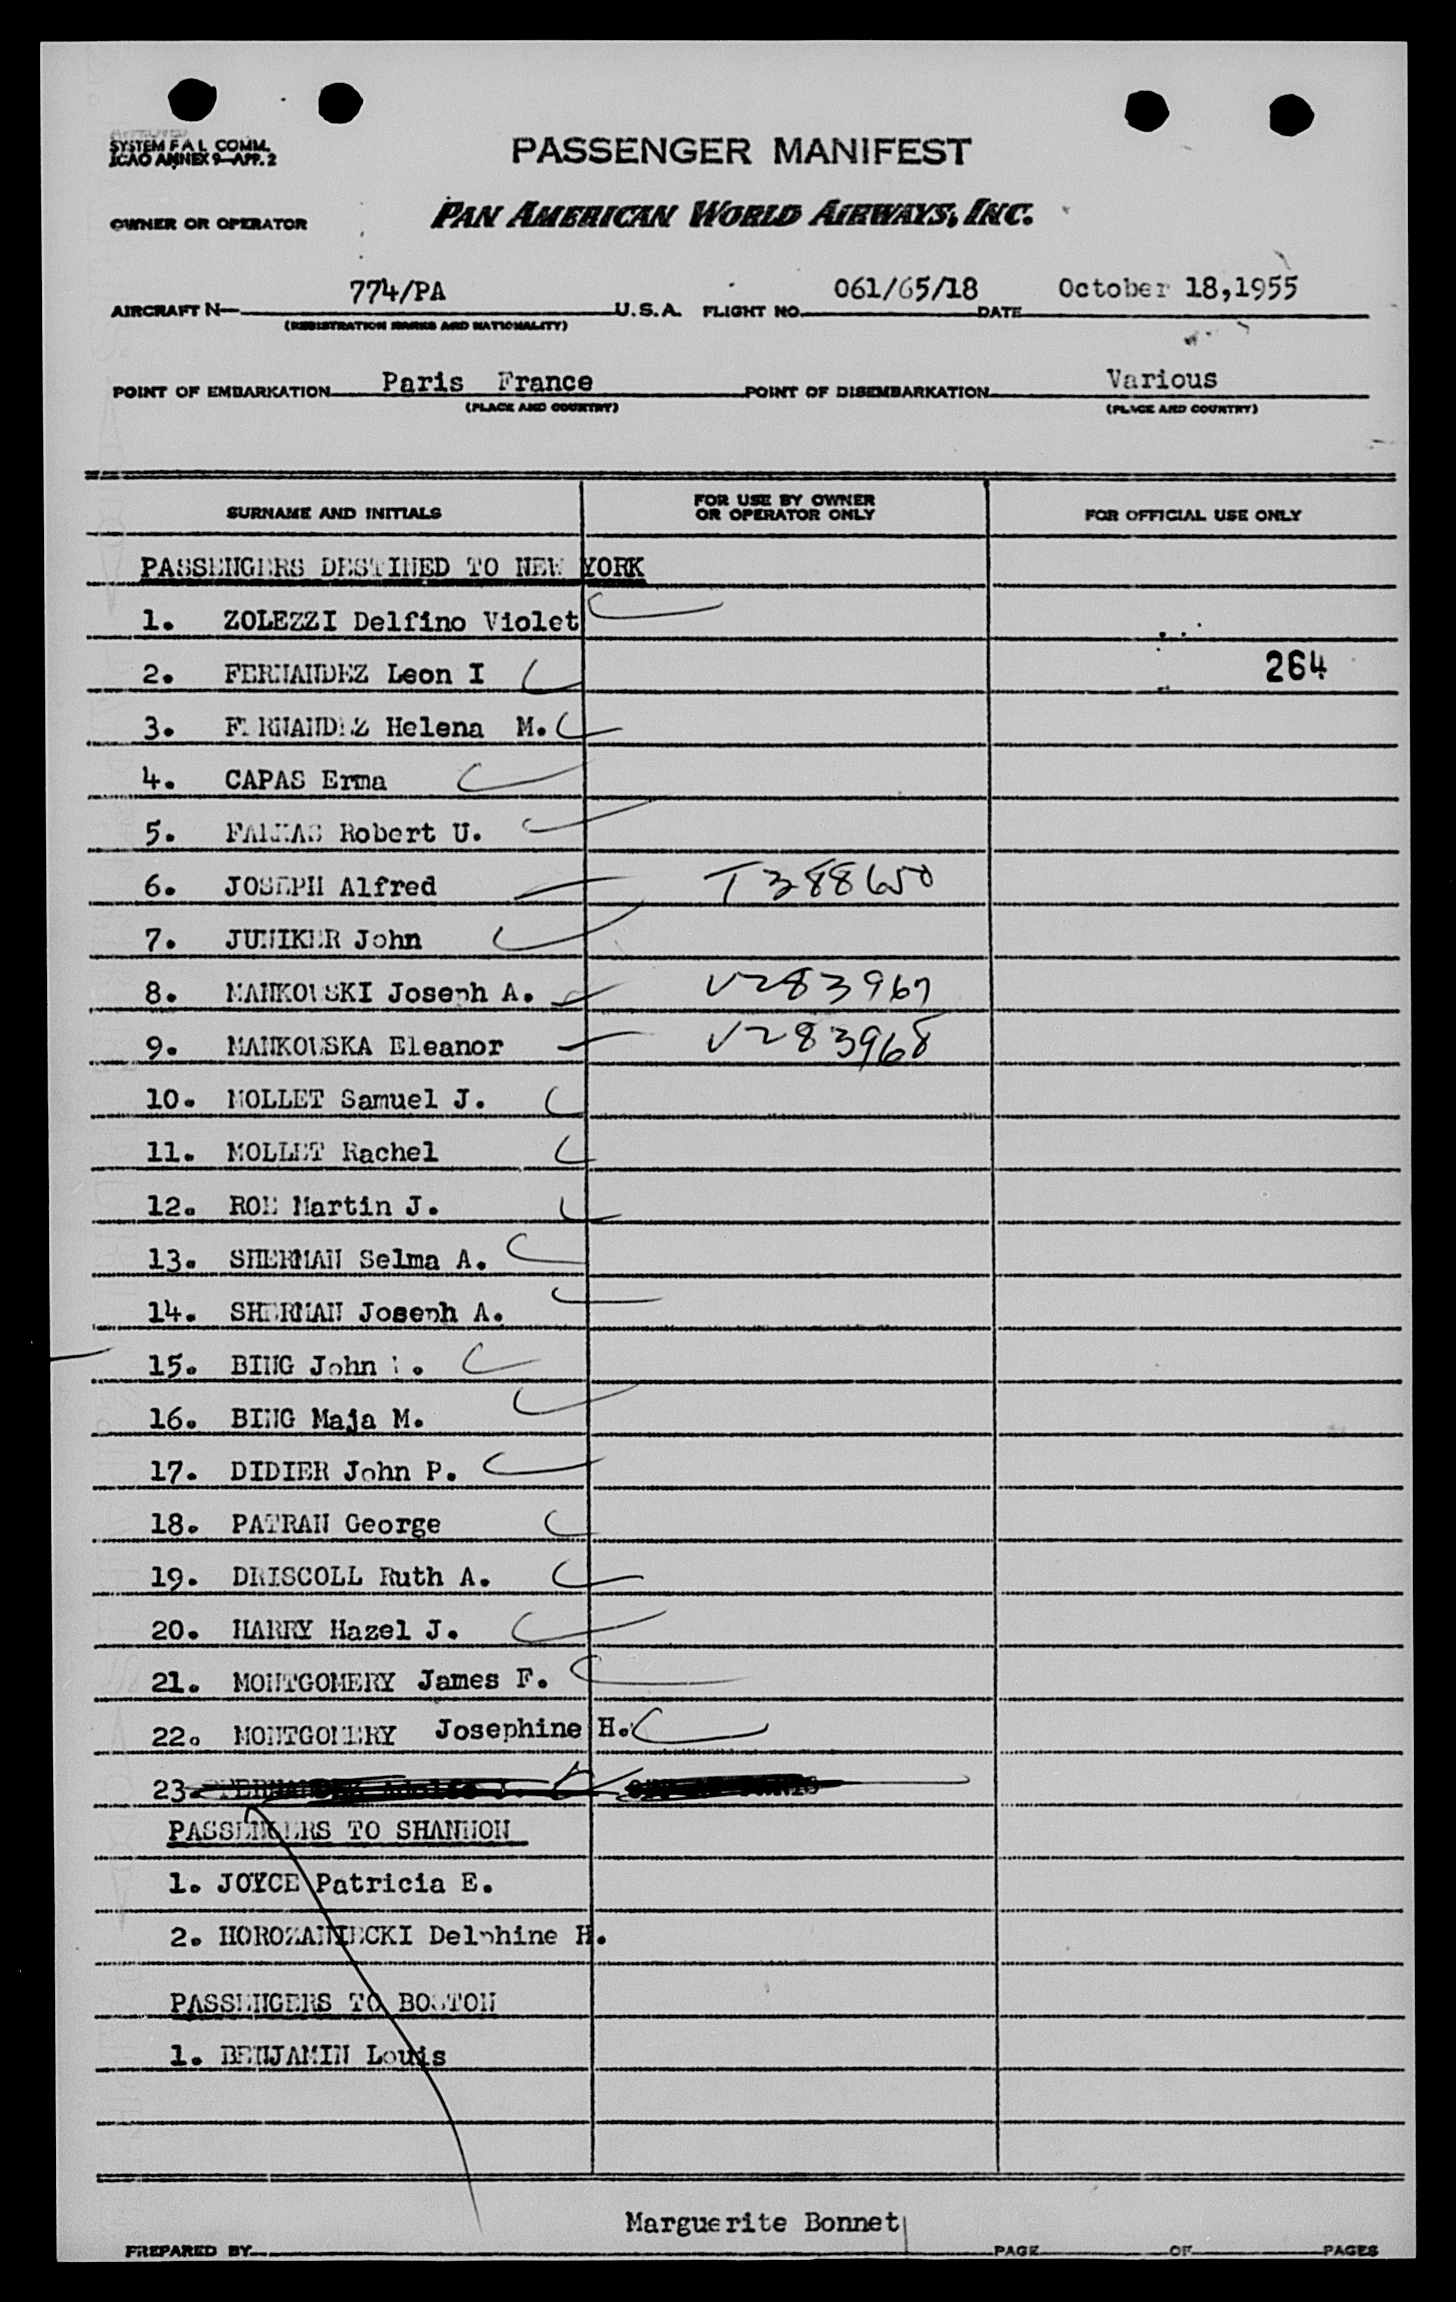 APPROVED
SYSTEM F A L COMM.
ICAO ANNEX 9—APP. 2
PASSENGER MANIFEST
OWNER OR OPERATOR PAN AMERICAN WORLD AIRWAYS, INC.
AIRCRAFT N— 774/PA U.S.A. FLIGHT NO. 061/65/18 DATE October 18,1955
(REGISTRATION MARKS AND NATIONALITY)
POINT OF EMBARKATION Paris France POINT OF DISEMBARKATION Various
(PLACE AND COUNTRY) (PLACE AND COUNTRY)
SURNAME AND INITIALS FOR USE BY OWNER OR OPERATOR ONLY FOR OFFICIAL USE ONLY
PASSENGERS DESTINED TO NEW YORK
1. ZOLEZZI Delfino Violet
2. FERNANDEZ Leon I 264
3. FERNANDEZ Helena M.
4. CAPAS Erma
5. Robert U.
6. JOSEPH Alfred T388650
7. JUNIKER John
8. MANKOWSKI Joseph A. V283967
9. MANKOWSKA Eleanor V283968
10. MOLLET Samuel J.
11. MOLLET Rachel
12. ROE Martin J.
13. SHERMAN Selma A.
14. SHERMAN Joseph A.
15. BING John
16. BING Maja M.
17. DIDIER John P.
18. PATRAN George
19. DRISCOLL Ruth A.
20. HARRY Hazel J.
21. MONTGOMERY James F.
22. MONTGOMERY Josephine H.
23. FERNANDEZ Adolfo J.
PASSENGERS TO SHANNON
1. JOYCE Patricia E.
2. HOROZANIECKI Delphine H.
PASSENGERS TO BOSTON
1. BENJAMIN Louis
Marguerite Bonnet
PREPARED BY PAGE OF PAGES